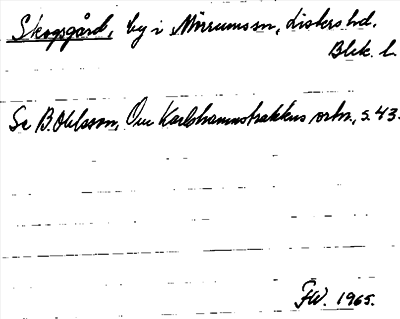 Skogsgård, by i Mörrums sn, Listers hd.
Blek. l.
Se B. Ohlsson, Om Karlshamnstraktens ortn., s. 43.
FW. 1965.